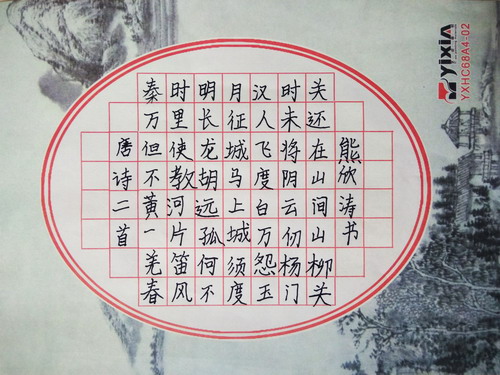 唐诗二首
秦时明月汉时关
万里长征人未还
但使龙城飞将在
不教胡马度阴山
黄河远上白云间
一片孤城万仞山
羌笛何须怨杨柳
春风不度玉门关
熊欣涛书
YXHC68A4-02